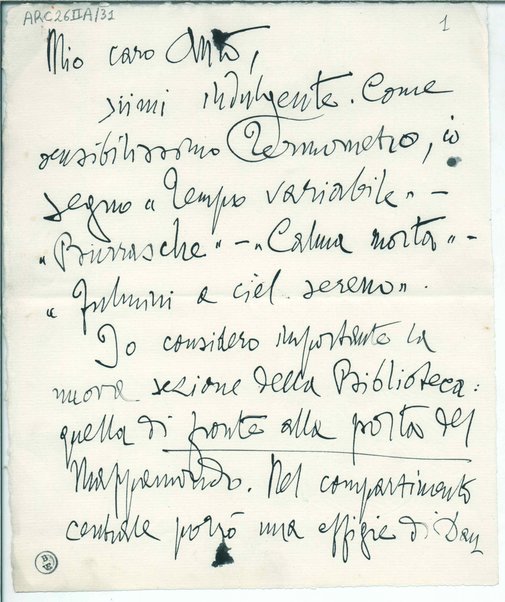 ARC26IIA/31
1
Mio caro Antò,
siimi indulgente. Come
sensibilissimo Termometro, io
segno "Tempo variabile" –
"Burrasche" – "Calma morta" –
"Fulmini a ciel sereno".
Io considero importante la
nuova sezione della Biblioteca:
quella di fronte alla porta del
Mappamondo. Nel compartimento
centrale porrò una effigie di Dan